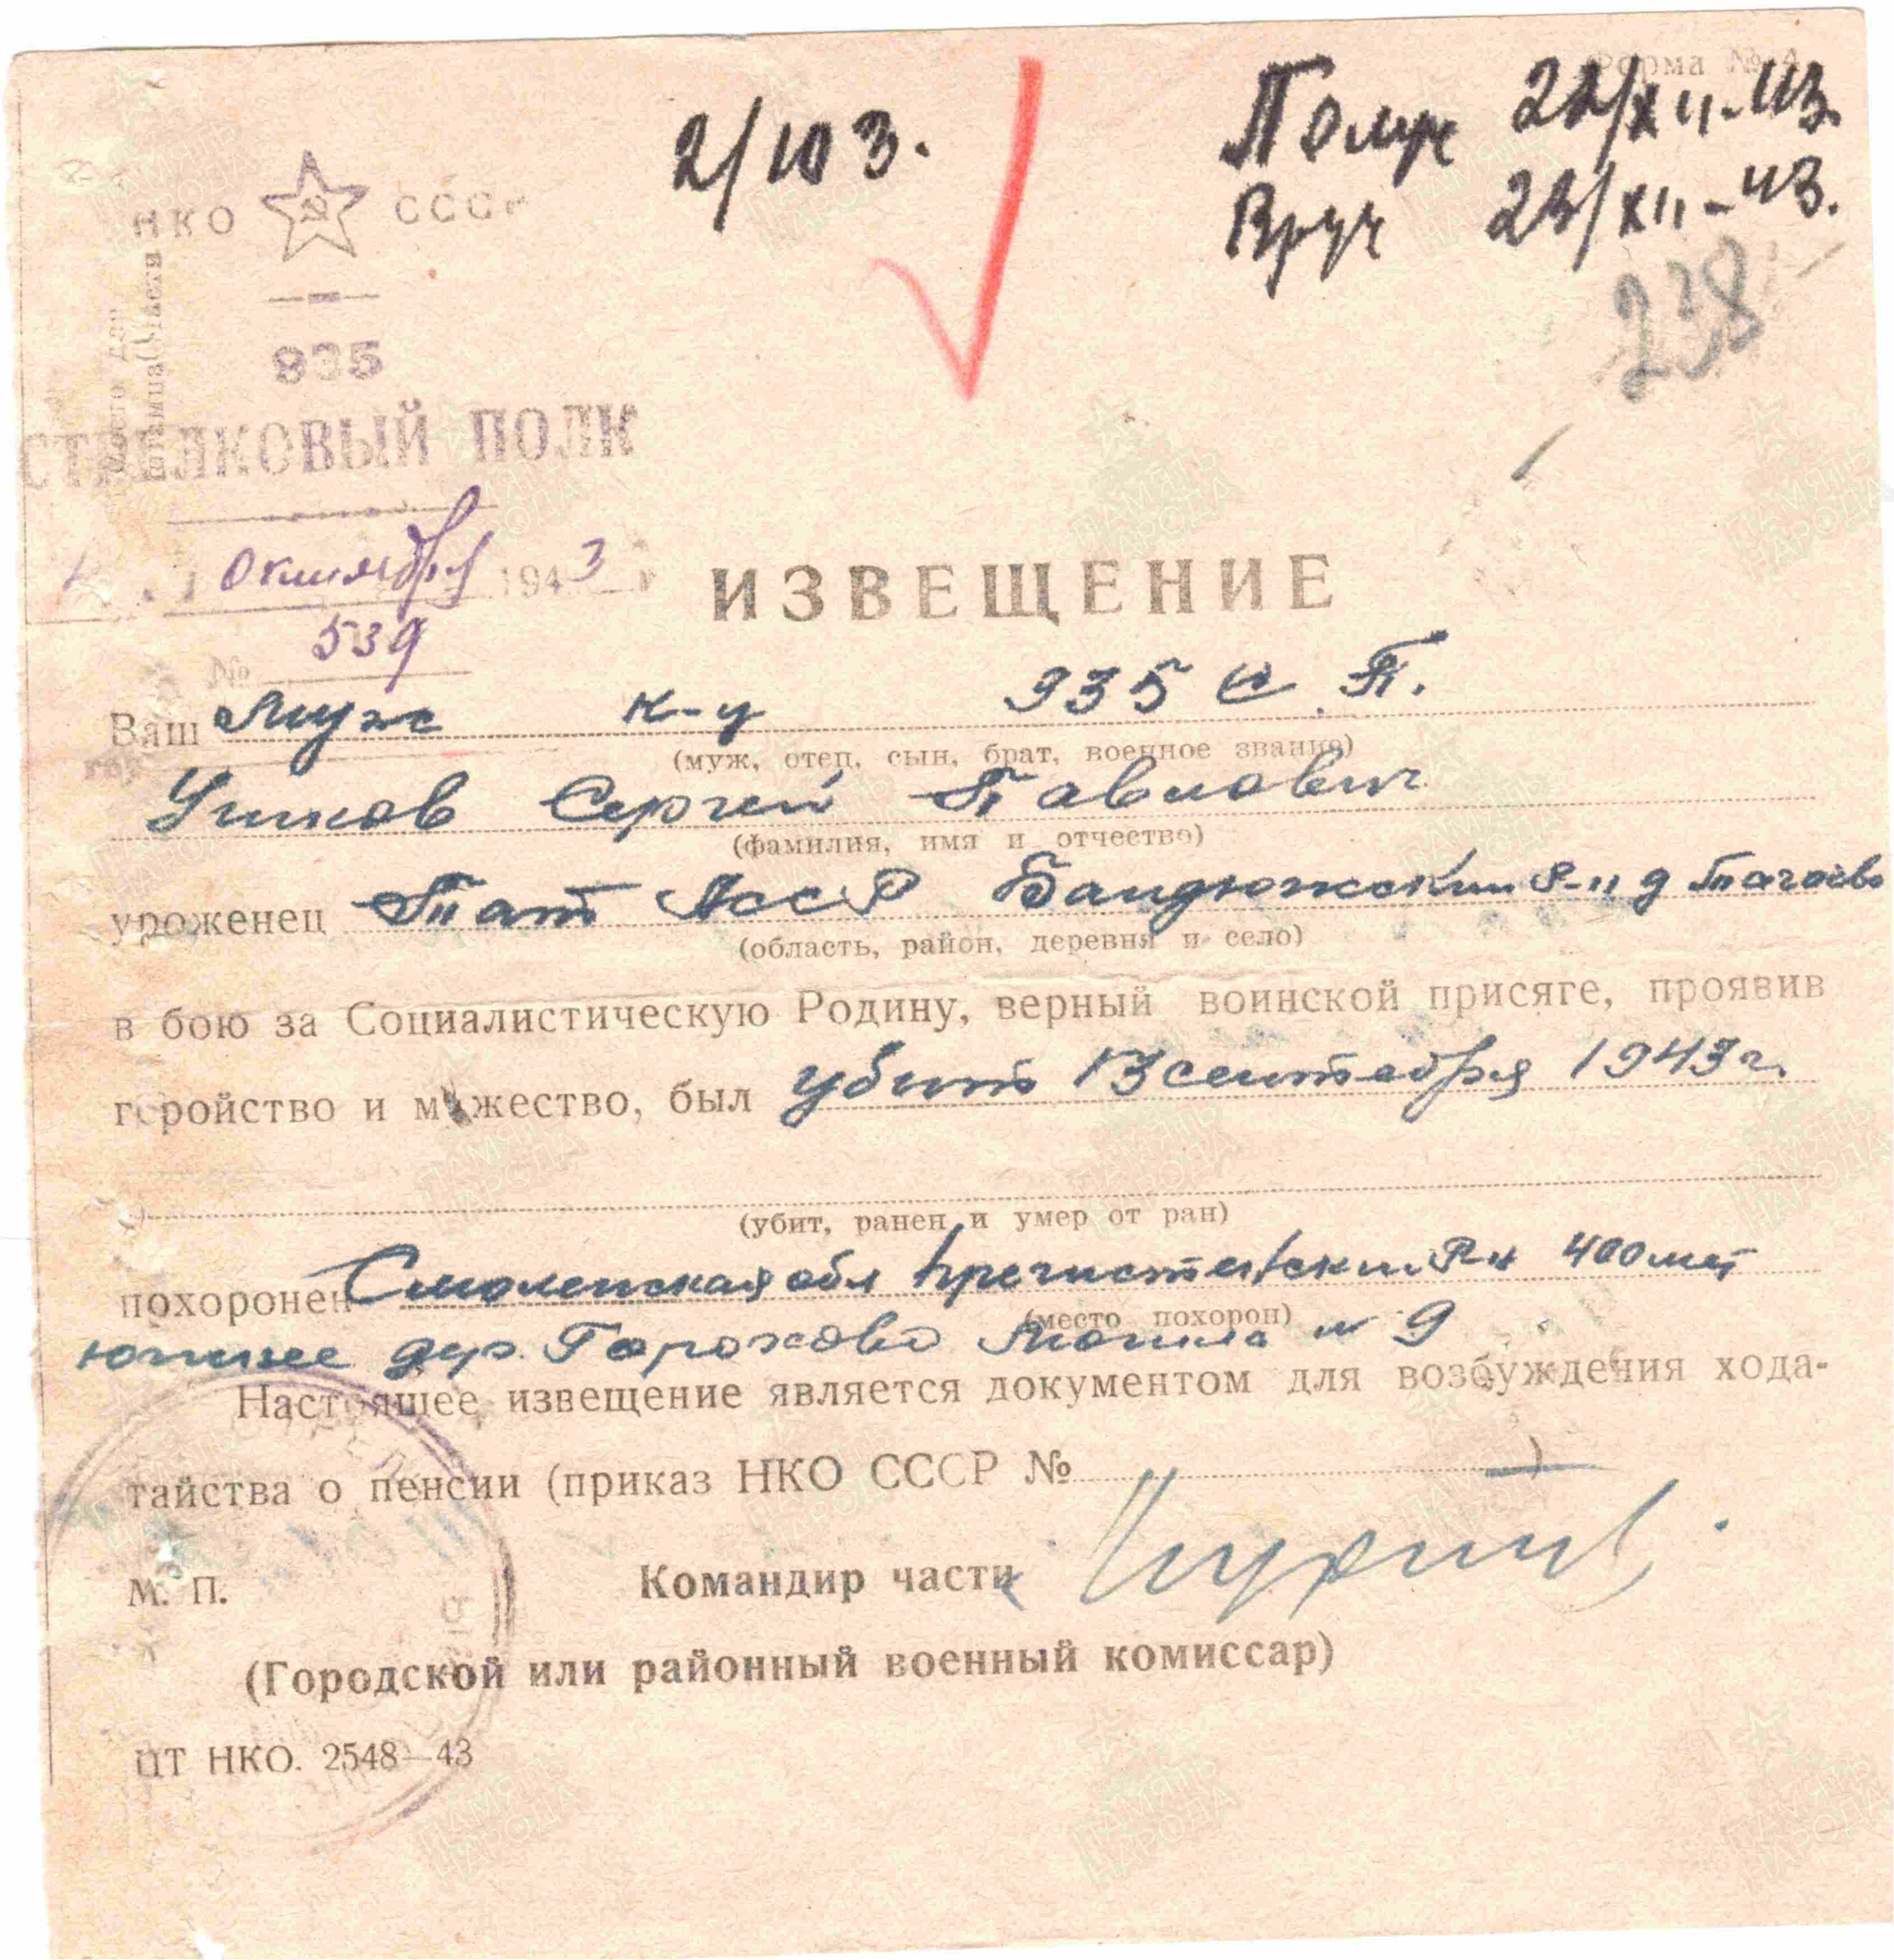 Форма № 4
2/103.
Получ 22/XII-43.
Вруч 23/XII-43.
238
НКО СССР
935
СТРЕЛКОВЫЙ ПОЛК
октября 1943 г
№ 539
ИЗВЕЩЕНИЕ
Ваш муж к-ц 935 С.П.
(муж, отец, сын, брат, военное звание)
Сергей Павлович
(фамилия, имя и отчество)
уроженец Тат АССР Бондюжский р-н д
(область, район, деревня и село)
в бою за Социалистическую Родину, верный воинской присяге, проявив
геройство и мужество, был убит 13 сентября 1943 г.
(убит, ранен и умер от ран)
похоронен Смоленская обл Пречистенский р-н 400 мет
(место похорон)
южнее дер. Горохово могила № 9
Настоящее извещение является документом для возбуждения хода-
тайства о пенсии (приказ НКО СССР № )
М. П.
Командир части
(Городской или районный военный комиссар)
ЦТ НКО. 2548—43
ПАМЯТЬ НАРОДА